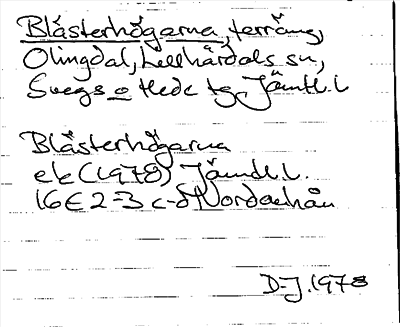 Blästerhögarna, terräng,
Olingdal, Lillhärdals sn,
Svegs o Hede tg, Jämtl. l
Blästerhögarna
ek (1978) Jämtl. l.
16E 2-3 c-d
D-J. 1978